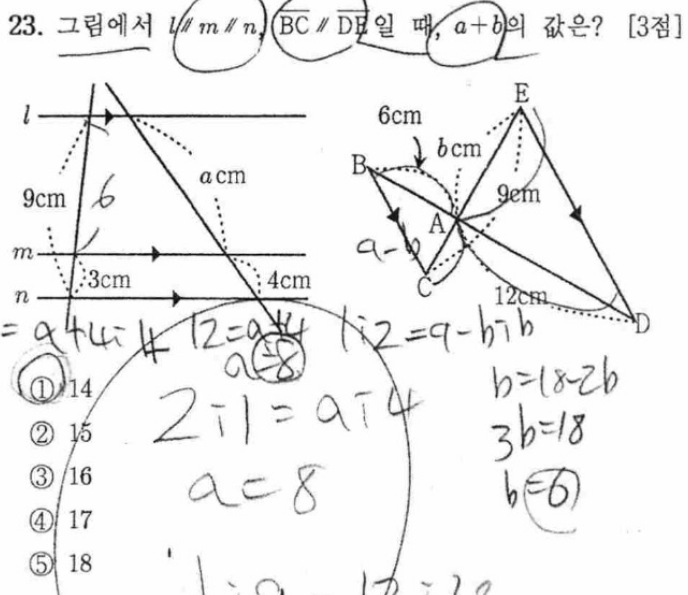 23. 그림에서 l∥m∥n, BC∥DE일 때, a+b의 값은? [3점]
l
9cm 6
a cm
m
3cm
4cm
n
E
6cm
b cm
B
9cm
A
a-b
C
12cm
D
= a+4:4 12=a+4 1:2=9-b:b
a=8
b=18-2b
2:1=a:4
3b=18
a=8
b=6
① 14
② 15
③ 16
④ 17
⑤ 18